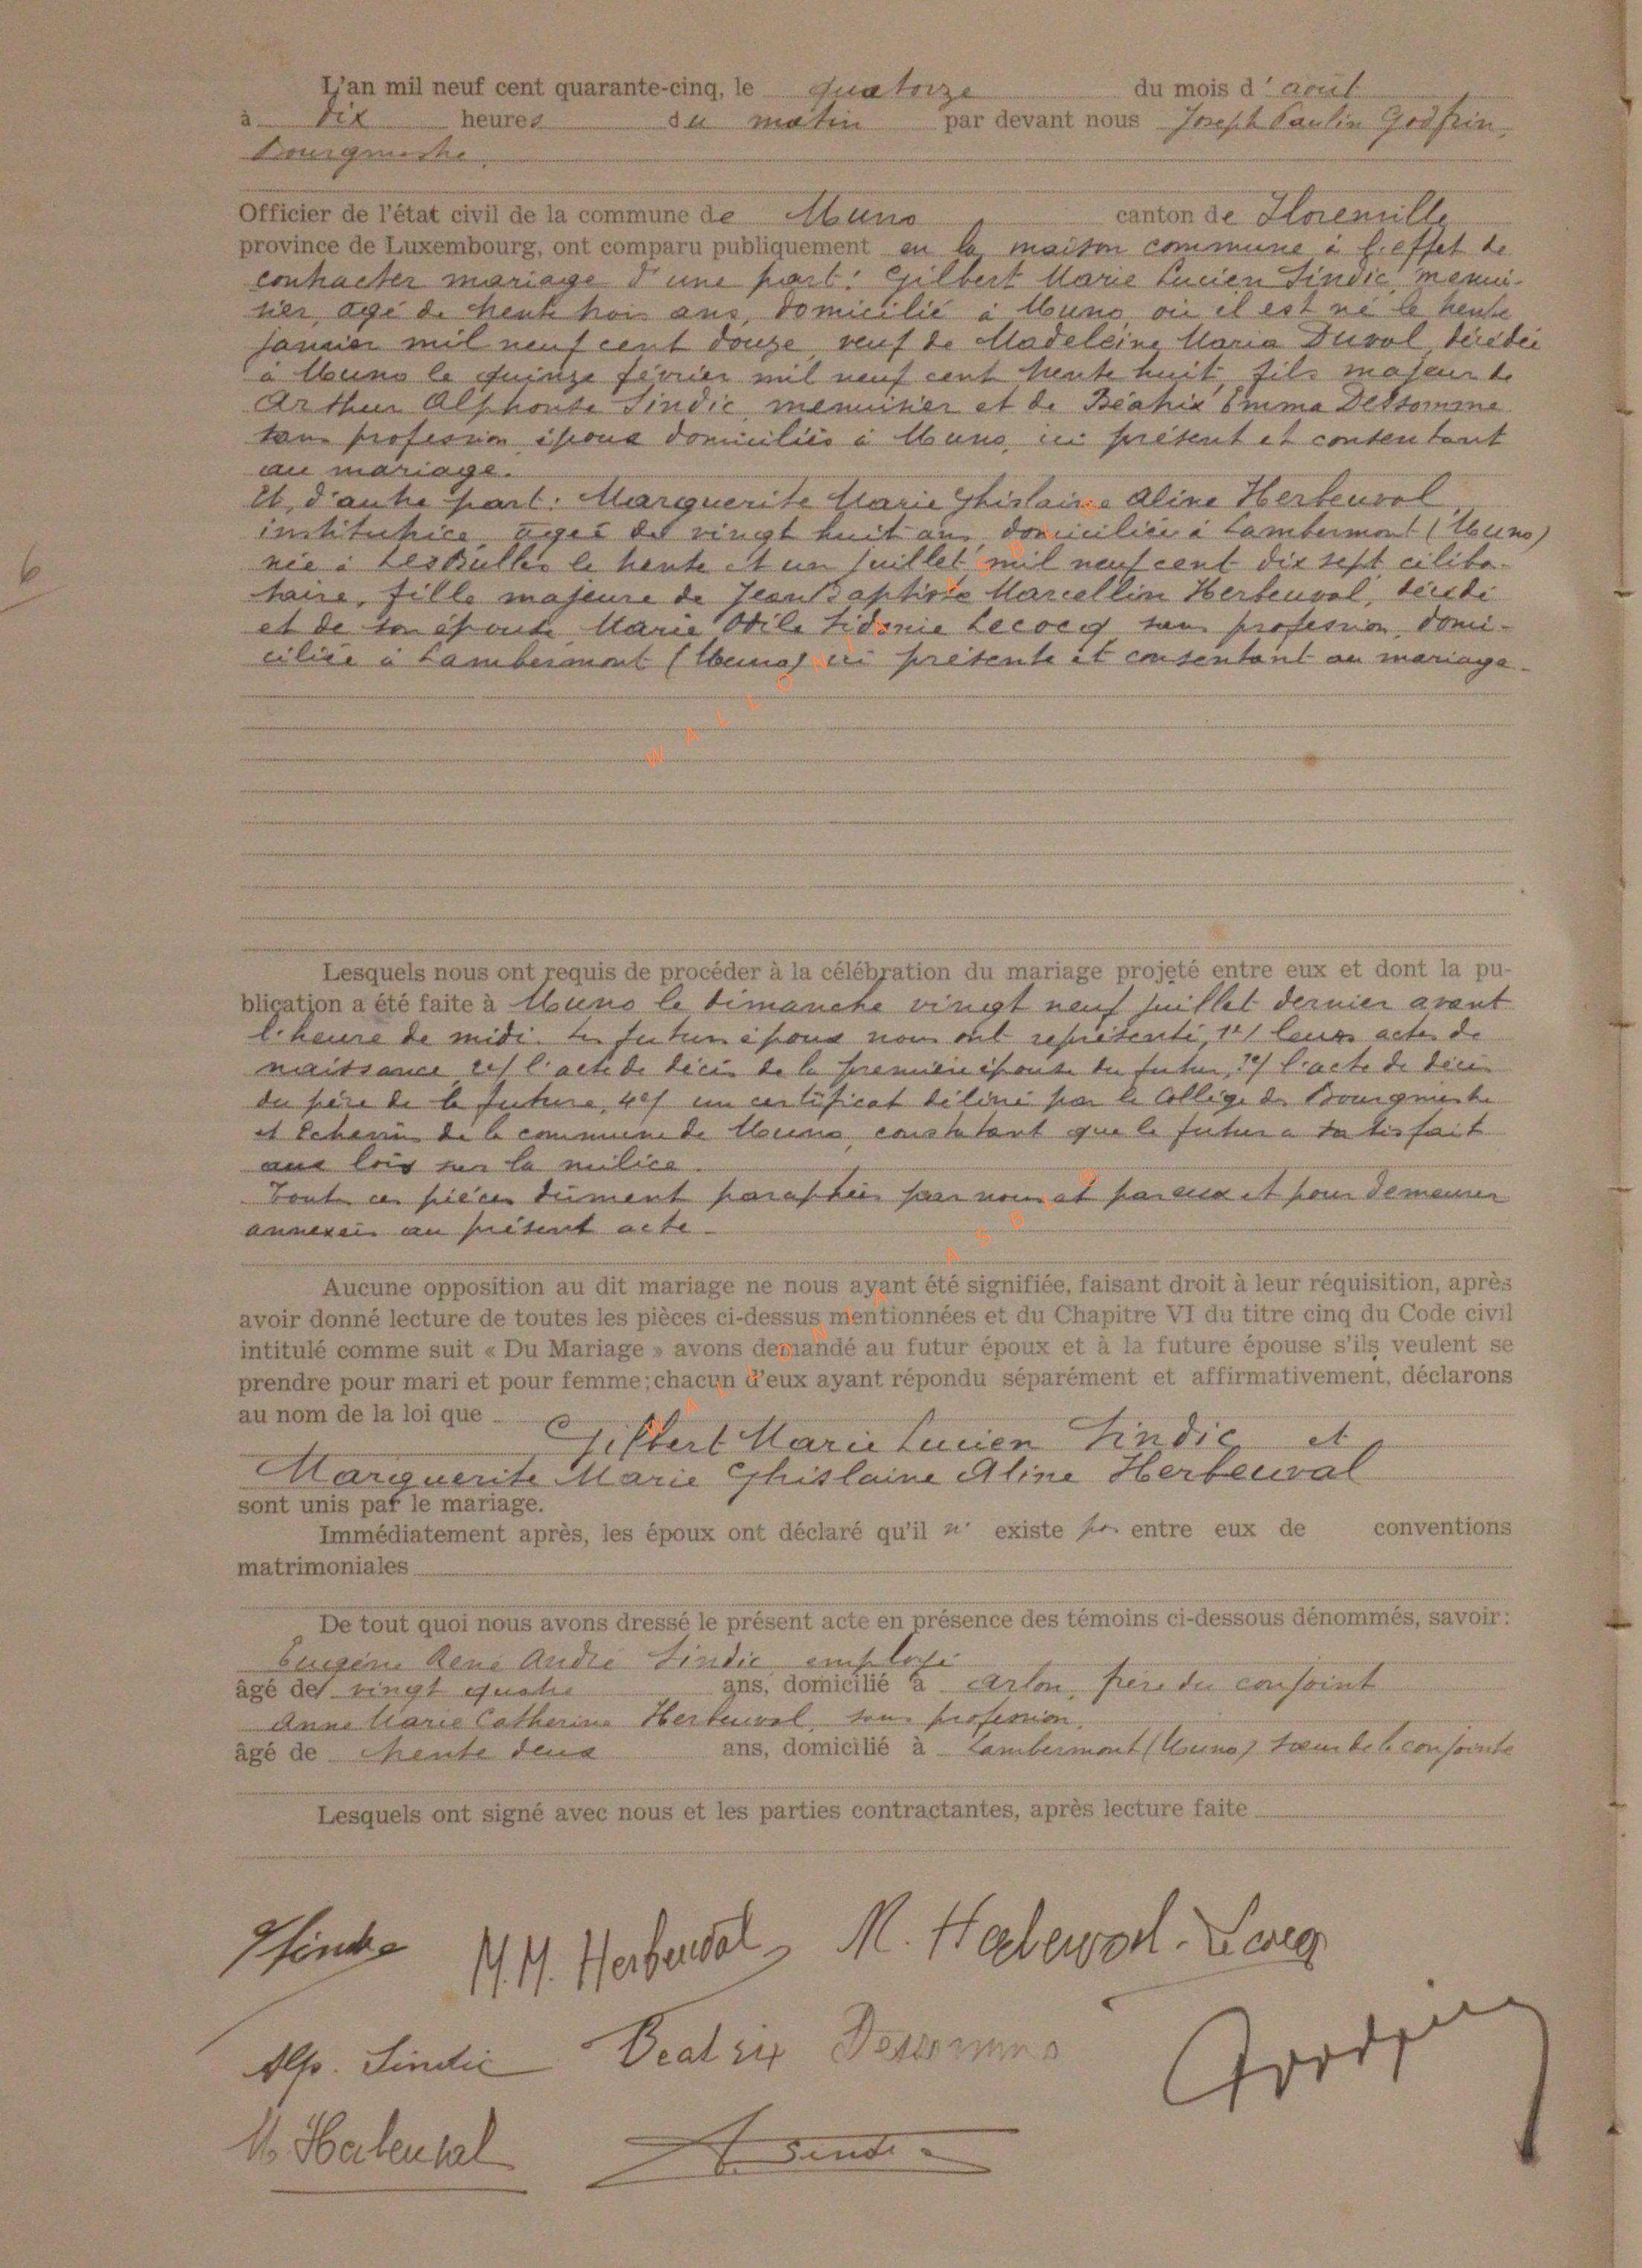 L'an mil neuf cent quarante-cinq, le quatorze du mois d'août
à dix heures du matin par devant nous Joseph Paulin Godfrin,
Bourgmestre
Officier de l'état civil de la commune de Muno canton de Florenville
province de Luxembourg, ont comparu publiquement en la maison commune à l'effet de
contracter mariage d'une part: Gilbert Marie Lucien Sindic, menui-
sier, agé de trente trois ans, domicilié à Muno où il est né le trente
janvier mil neuf cent douze, veuf de Madeleine Maria Duval, décédée
à Muno le quinze février mil neuf cent trente huit, fils majeur de
Arthur Alphonse Sindic, menuisier et de Béatrix Emma Dessomme
sans profession, époux domiciliés à Muno, ici présent et consentant
au mariage.
Et, d'autre part: Marguerite Marie Ghislaine Aline Herbeuval,
institutrice, agée de vingt huit ans, domiciliée à Lambermont (Muno)
née à Les Bulles le trente et un juillet mil neuf cent dix sept, céliba-
taire, fille majeure de Jean Baptiste Marcellin Herbeuval, décédé
et de son épouse Marie Odile Sidonie Lecocq, sans profession, domi-
ciliée à Lambermont (Muno) ici présente et consentant au mariage.
6
WALLONIA ASBL
Lesquels nous ont requis de procéder à la célébration du mariage projeté entre eux et dont la pu-
blication a été faite à Muno le dimanche vingt neuf juillet dernier avant
l'heure de midi. Les futurs époux nous ont représenté, 1º/ leurs actes de
naissance, 2º/ l'acte de décès de la première épouse du futur, 3º/ l'acte de décès
du père de la future, 4º/ un certificat délivré par le Collège des Bourgmestre
et Echevins de la commune de Muno, constatant que le futur a satisfait
aux lois sur la milice.
Toutes ces pièces dûment paraphées par nous et par eux et pour demeurer
annexées au présent acte.
WALLONIA ASBL
Aucune opposition au dit mariage ne nous ayant été signifiée, faisant droit à leur réquisition, après
avoir donné lecture de toutes les pièces ci-dessus mentionnées et du Chapitre VI du titre cinq du Code civil
intitulé comme suit « Du Mariage » avons demandé au futur époux et à la future épouse s'ils veulent se
prendre pour mari et pour femme; chacun d'eux ayant répondu séparément et affirmativement, déclarons
au nom de la loi que
Gilbert Marie Lucien Sindic et
Marguerite Marie Ghislaine Aline Herbeuval
sont unis par le mariage.
Immédiatement après, les époux ont déclaré qu'il n' existe pas entre eux de conventions
matrimoniales
De tout quoi nous avons dressé le présent acte en présence des témoins ci-dessous dénommés, savoir:
Eugène René André Sindic, employé
âgé de vingt quatre ans, domicilié à Arlon, frère du conjoint
Anne Marie Catherine Herbeuval, sans profession,
âgé de trente deux ans, domicilié à Lambermont (Muno) soeur de la conjointe
Lesquels ont signé avec nous et les parties contractantes, après lecture faite
M.M. Herbeuval M. Herbeuval-Lecocq
Alp. Sindic Beatrix Dessomme Godfrin
M. Herbeuval Sindic